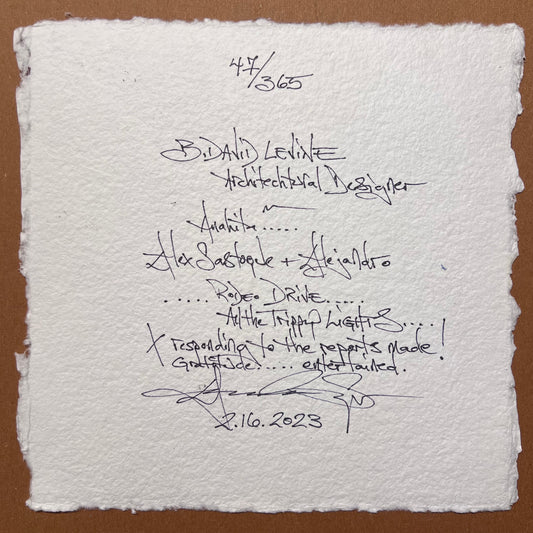 47/365
B. DAVID LEVINE
Architechtural Designer
Anahita.....
Alex Sastoque + Alejandro
..... RODEO DRIVE.....
All the Trippy LIGHTS....
X responding to the reports made!
Gratitude..... entertained.
2.16.2023